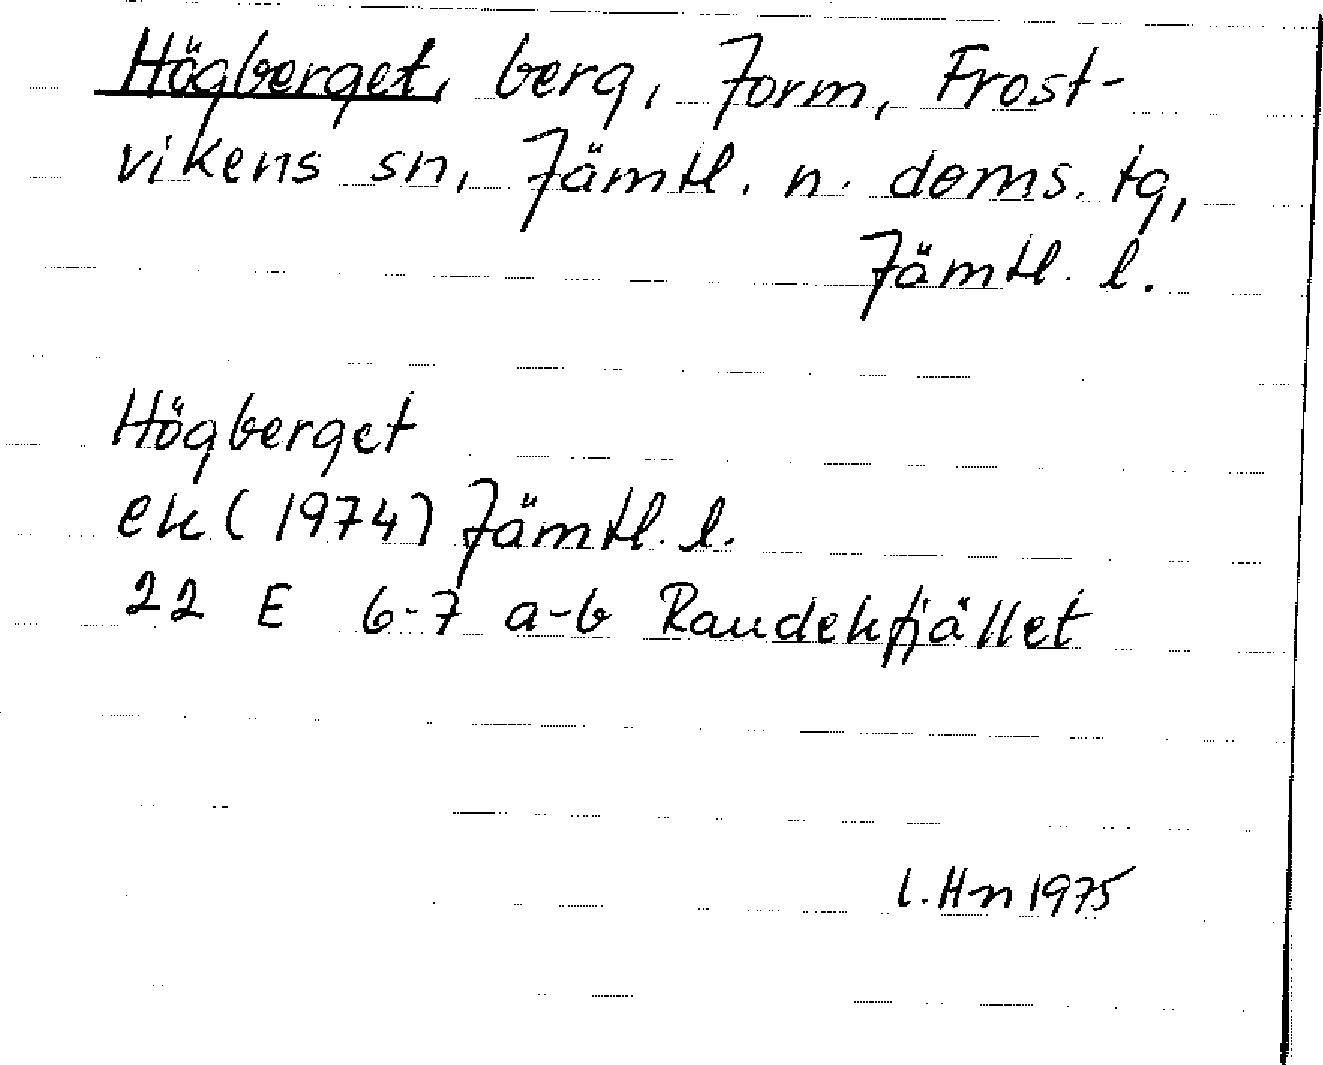 Högberget, berg, Jorm, Frost-
vikens sn, Jämtl. n. doms. tg,
Jämtl. l.
Högberget
ek (1974) Jämtl. l.
22 E 6-7 a-b Raudekfjället
l. Hn 1975